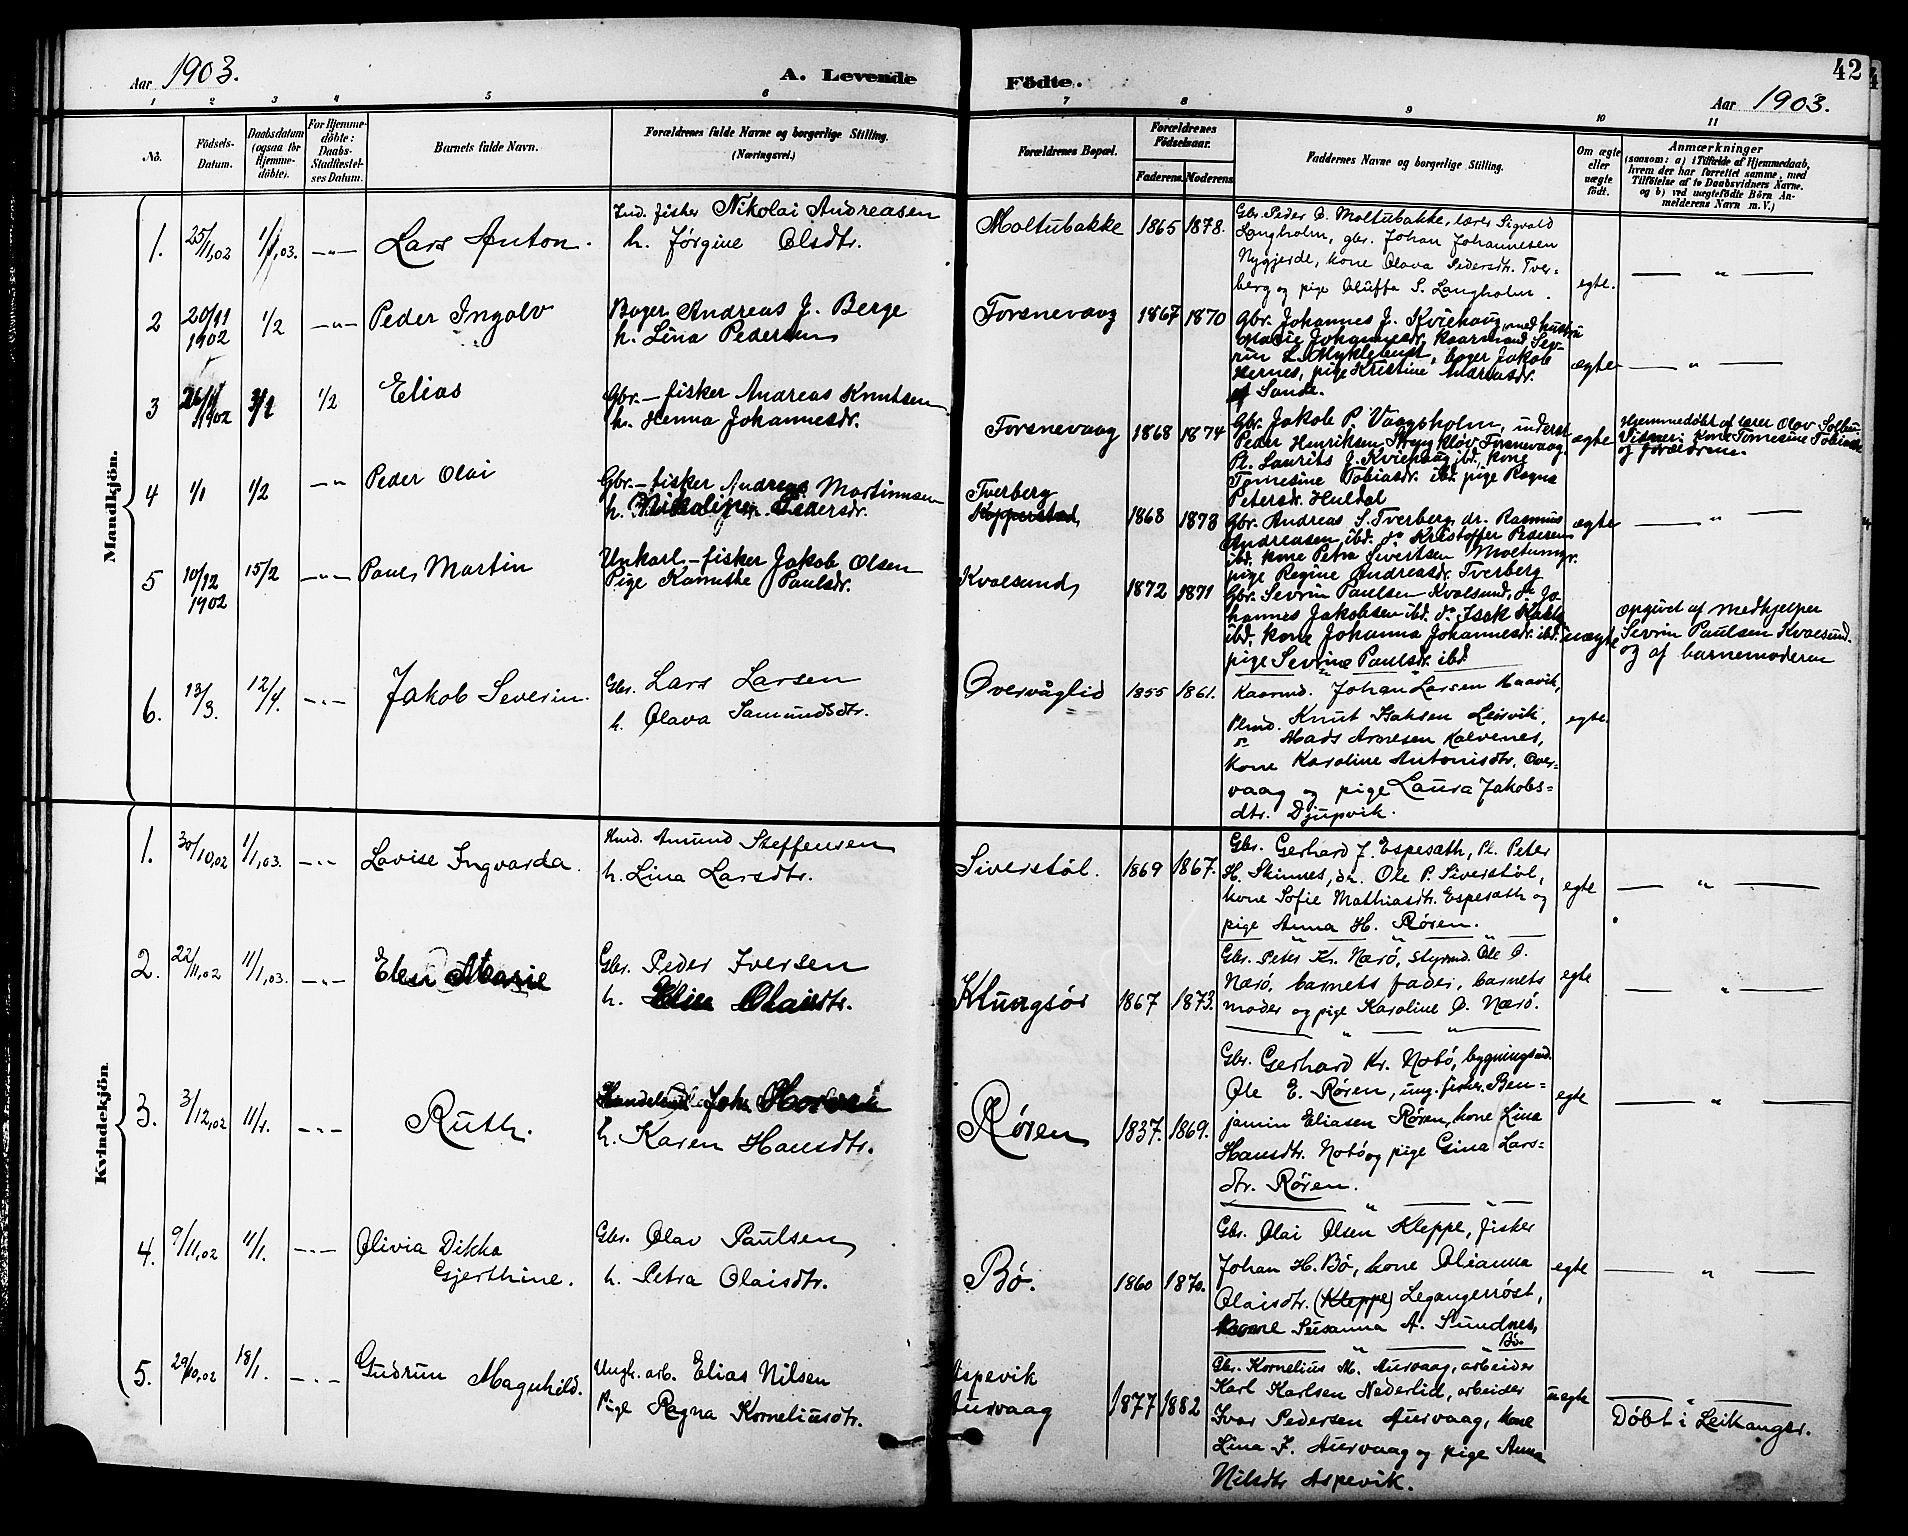 Aar 1903. A. Levende Födte. 42
Aar 1903.
1 2 3 4 5 6 7 8 9 10 11
No.
Födsels-Datum.
Daabsdatum (ogsaa for Hjemme-döbte).
For Hjemme-döbte: Daabs-Stadfestel-ses Datum.
Barnets fulde Navn.
Forældrenes fulde Navne og borgerlige Stilling.
(Næringsvei.)
Forældrenes Bopæl.
Forældrenes Födselsaar.
Faderens. Moderens.
Faddernes Navne og borgerlige Stilling.
Om ægte eller uægte födt.
Anmærkninger
(saasom: a) i Tilfælde af Hjemmedaab,
hvem der har forrettet samme, med
Tilföielse af to Daabsvidners Navne.
og b) ved uegtefödte Börn An-
melderens Navn m. V.)
Mandkjön.
1. 25/11,02 1/1,03. —„— Lars Anton.
Ind. fisker Nikolai Andreasen
h. Jørgine Olsdtr.
Moltubakke 1865 1878.
Gbr. Peder O. Moltubakke, lærer Sigvald
Langholm, gbr. Johan Johannesen
Nygjerde, kone Olava Pedersdtr. Tver-
berg og pige Oluffa S. Langholm.
egte. — „ —
2 20/11 1902 1/2 —„— Peder Ingolv
Bager Andreas J. Berge
h. Lina Pedersen
Torsnevaag 1867 1870
Gbr. Johannes J. Kviehaug, med hustru
Marie Johannesdr, kaarmand Sev-
rin L. Myklebust, bager Jakob
Hernes, pige Kristine Andreasdr.
af Sande.
ægte — „ —
3 26/11 1902 1/2 Elias
Gbr. – fisker Andreas Knutsen
h. Henna Johannesdr.
Torsnevaag 1868 1874
Gbr. Jakob P. Vaagsholm,
Peder Henriksen Torsnevaag
Pl. Laurits J. Kviehaug ibd, kone
Tomesine Tobiasdr. ibd. pige Ragna
Petersdr. Huldal
ægte
Hjemmedøbt af lærer Olav Solbu
Vidner: Kone Tomesine Tobiasdr
og forældrene.
4 1/1 1/2 —„— Peder Olai
Gbr. – fisker Andreas Martinusen
h. Nikoline Pedersdr.
Tverberg
Kopperstad 1868 1873
Gbr. Andreas S. Tverberg, dr. Rasmus
Andreasen ibd. do Kristoffer Pedersen
ibd. kone Petra Sivertsen Moltumyr.
pige Regine Andreasdr. Tverberg
ægte — „ —
5 10/12 1902 15/2 —„— Paul Martin
Unkarl – fisker Jakob Olsen
Pige Kanutte Paulsdr.
Kvalsund 1872 1871
Gbr. Sevrin Paulsen Kvalsund, do Jo-
hannes Jakobsen ibd. do Isak
ibd, kone Johanna Johannesdr. ibd.
pige Sevrine Paulsdr. ibd
uægte
opgivet af medhjelper
Sevrin Paulsen Kvalsund.
og af barnemoderen
6. 13/3. 12/4. —„— Jakob Severin.
Gbr. Lars Larsen
h. Olava Samundsdtr.
Overvåglid 1855 1861.
Kaarmd. Johan Larsen Haavik,
Plmd. Knut Isaksen Leirvik,
do Mads Arnesen Kalvenes,
kone Karoline Antonisdtr. Over-
vaag og pige Laura Jakobs-
dtr. Djupvik.
egte.
Kvindekjön.
1. 30/10,02 1/1,03. —„— Lovise Ingvarda.
Hmd. Amund Steffensen
h. Lina Larsdtr.
Siverstøl. 1869 1867.
Gbr. Gerhard J. Espesæth, Pl. Peter
H. Skinnes, do. Ole P. Siverstøl,
kone Sofie Mathiasdtr. Espesæth og
pige Anna H. Røren.
egte — „ —
2. 22/11,02 11/1,03. —„— Elen Marie
Gbr. Peder Iversen
h. Elise Olaisdtr.
Klungsør 1867 1873.
Gbr. Peter Kr. Nærø, styrmd. Ole O.
Nærø, barnets fader, barnets
moder og pige Karoline O. Nærø.
egte — „ —
3. 3/12,02 11/1. —„— Ruth.
Joh.
h. Karen Hansdtr.
Røren 1837. 1869.
Gbr. Gerhard Kr. Notø, bygningsmd.
Ole E. Røren, ung. fisker Ben-
jamin Eliasen Røren, kone Lina
Hansdtr. Notø og pige Gina Lars-
dtr. Røren.
egte — „ —
4. 9/11,02 11/1. —„— Olivia Dikka
Gjerthine.
Gbr. Olav Paulsen
h. Petra Olaisdtr.
Bø. 1860 1870.
Gbr. Olai Olsen Kleppe, fisker
Johan H. Bø, kone Olianna
Olaisdtr. (Kleppe) Legangerrøst,
kone Susanna A. Sundnes,
Bø.
egte — „ —
5. 29/10,02 18/1. —„— Gudrun Magnhild.
Ungk. arb. Elias Nilsen
Pige Ragna Korneliusdtr.
Aspevik
Aurvaag 1877 1882
Gbr. Kornelius M. Aurvaag, arbeider
Karl Karlsen Nederlid, arbeider
Ivar Pedersen Aurvaag, kone
Lina I. Aurvaag og pige Anna
Nilsdtr Aspevik.
uegte
Døbt i Leikanger.